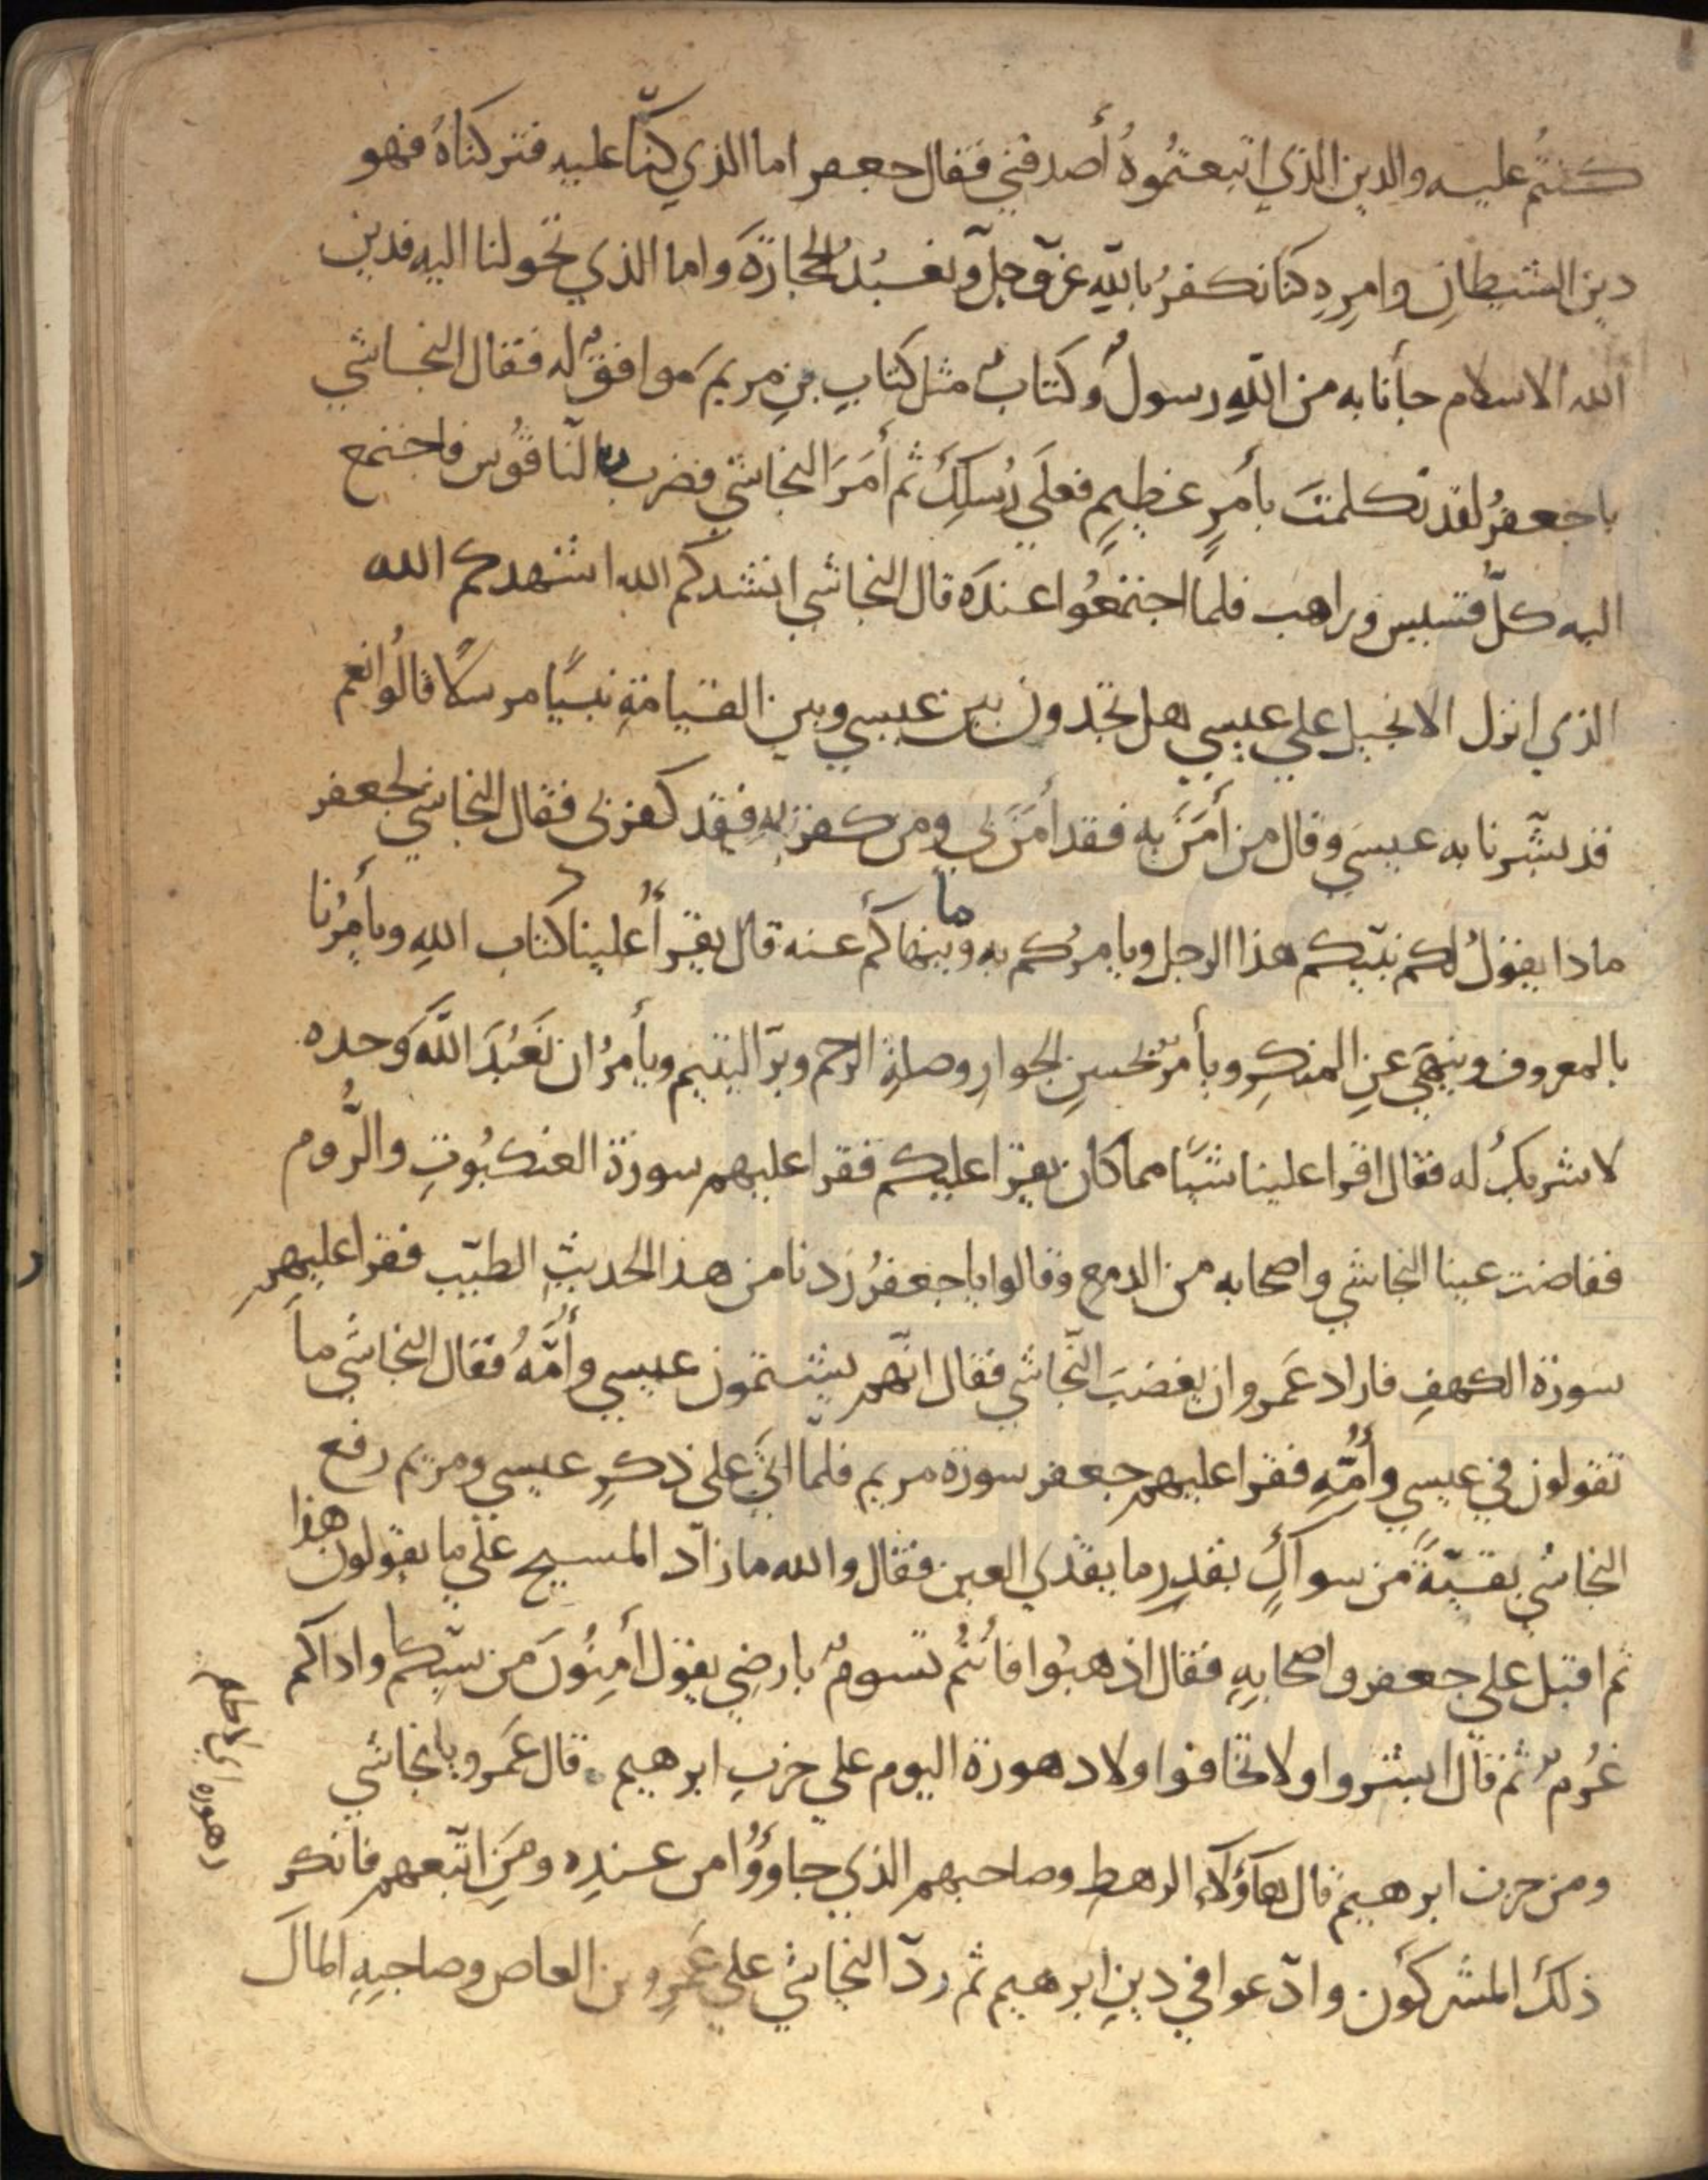 كنتم عليه والدين الذي اتبعتموه أصدقني فقال جعفر اما الذي كنّا عليه فتركناه فهو
دين الشيطان وامره كنا نكفر بالله عزّ وجلّ ونعبد الحجارة واما الذي تحولنا اليه فدين
الله الاسلام جأنا به من الله رسول وكتاب مثل كتاب بن مريم موافق له فقال النجاشي
يا جعفر لقد تكلمت بأمر عظيم فعلى رسلك ثم أمر النجاشي فضرب بالناقوس فاجتمع
اليه كلّ قسيس وراهب فلما اجتمعوا عنده قال النجاشي انشدكم الله اشهدكم الله
الذي انزل الانجيل علي عيسي هل تجدون بين عيسي وبين القيامة نبيّا مرسلا قالوا نعم
قد بشّرنا به عيسى وقال من أمن به فقد أمن بي ومن كفر به فقد كفر بى فقال النجاشي لجعفر
ماذا يقول لكم نبيّكم هذا الرجل ويامركم به وما ينهاكم عنه قال يقرأ علينا كتاب الله ويأمرنا
بالمعروف وينهى عن المنكر ويأمر بحسن الجوار وصلة الرحم وبرّ اليتيم ويأمر ان نعبد الله وحده
لا شريك له فقال اقرا علينا شيّا مما كان يقرا عليكم فقرا عليهم سورة العنكبوت والرّوم
ففاضت عينا النجاشي واصحابه من الدمع وقالوا يا جعفر زدنا من هذا الحديث الطيّب فقرا عليهم
سورة الكهف فاراد عمرو ان يغضب النّجاشي فقال انّهم يشتمون عيسي وأمّه فقال النجاشي ما
تقولون في عيسي وأمّه فقرا عليهم جعفر سورة مريم فلمّا اتى على ذكر عيسي ومريم رفع
النجاشي بقسّة من سواك بقدر ما يقذي العين فقال والله ما زاد المسيح على ما يقولون هذا
ثم اقبل علي جعفر واصحابه فقال اذهبوا فأنتم سوم بارضي يقول أمنون من سبّكم واذاكم
غرم ثم قال ابشروا ولا تخافوا ولا دهورة اليوم على حزب ابرهيم قال عمرو يا نجاشي
ومن حزب ابرهيم قال هاؤلاء الرهط وصاحبهم الذي جاؤوا من عنده ومن اتّبعهم فانكر
ذلك المشركون وادّعوا في دين ابرهيم ثم ردّ النجاشي على عمرو بن العاص وصاحبه المال